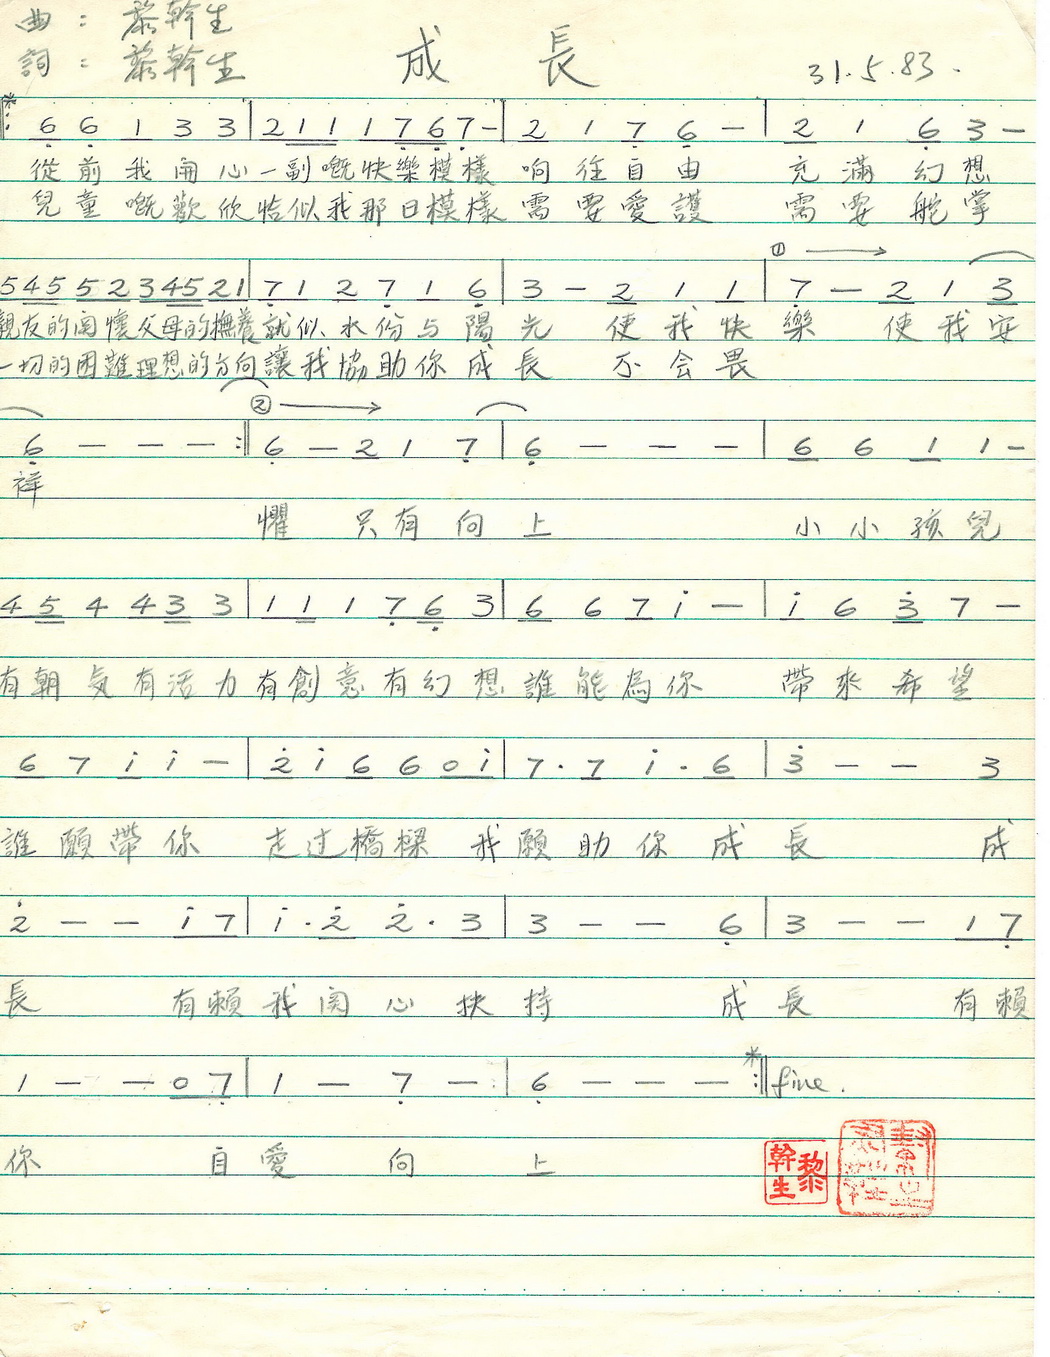 曲：黎幹生
詞：黎幹生
成長
31.5.83.
6 6 1 3 3 | 2 1 1 1 7 6 7 - | 2 1 7 6 - | 2 1 6 3 -
從前我開心一副嘅快樂模樣 响往自由 充滿幻想
兒童嘅歡欣恰似我那日模樣 需要愛護 需要鴕掌
① →
5 4 5 5 2 3 4 5 2 1 | 7 1 2 7 1 6 | 3 - 2 1 1 | 7 - 2 1 3
親友的関懷父母的撫養就似水份与陽光 使我快樂 使我安
一切的困難理想的方向讓我協助你成長 不会畏
② →
6 - - - :|| 6 - 2 1 7 | 6 - - - | 6 6 1 1 -
祥
懼 只有向上 小小孩兒
4 5 4 4 3 3 | 1 1 1 7 6 3 | 6 6 7 i - | i 6 3 7 -
有朝気有活力有創意有幻想誰能為你 帶來希望
6 7 i i - | 2 i 6 6 0 i | 7 · 7 i · 6 | 3 - - 3
誰願帶你 走过橋樑 我願助你成長 成
2 - - i 7 | i · 2 2 · 3 | 3 - - 6 | 3 - - 1 7
長 有賴我関心扶持 成長 有賴
1 - - 0 7 | 1 - 7 - | 6 - - - :|| fine.
你 自愛向上
黎幹生